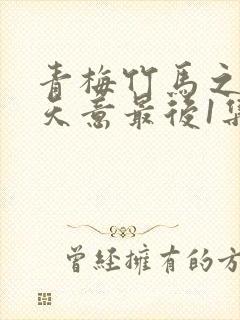 青梅竹马之
天意最後1集
曾经擁有的方